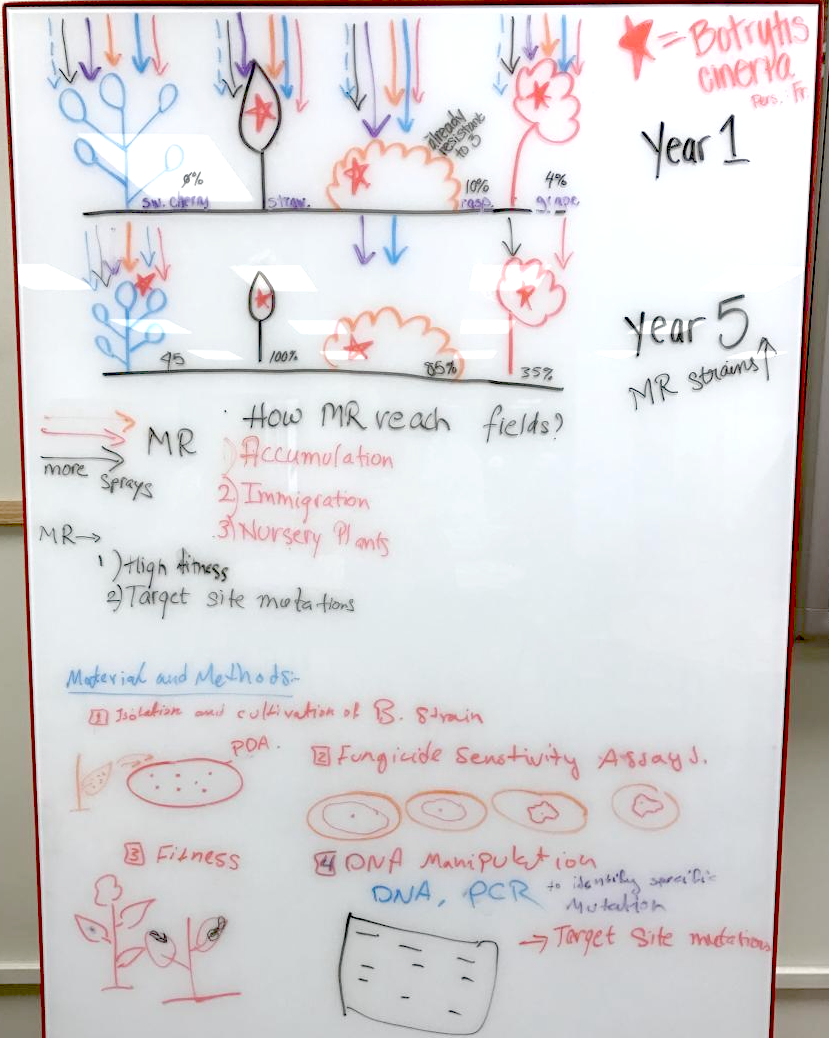 = Botrytis
cinerea
Pers.: Fr.
Year 1
already
resistant
to 3
0%
sw. cherry
straw.
10%
rasp.
4%
grape
Year 5
MR strains
45
100%
85%
35%
How MR reach fields?
MR
more sprays
1) Accumulation
2) Immigration
3) Nursery Plants
MR→
1) High fitness
2) Target site mutations
Material and Methods:-
1 Isolation and cultivation of B. strain
PDA.
2 Fungicide Senstivity Assays.
3 Fitness
4 DNA Manipulation
DNA, PCR to identify specific
Mutation
→ Target Site mutations